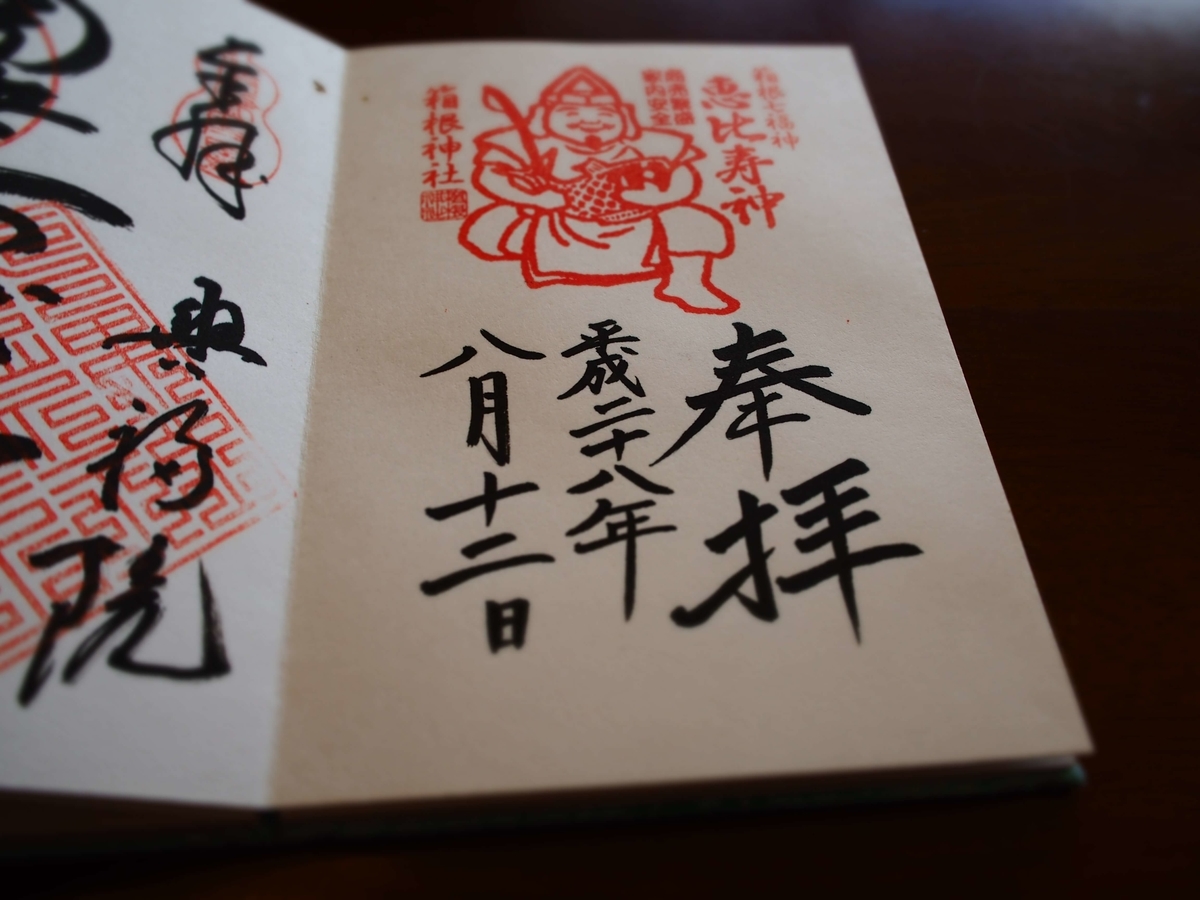 箱根七福神
恵比寿神
商売繁盛
家内安全
箱根神社
奉拝
平成二十八年
八月十二日
興福院